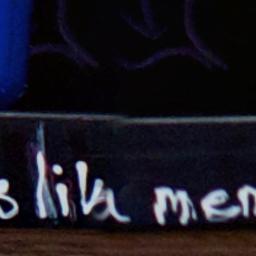 s lik men